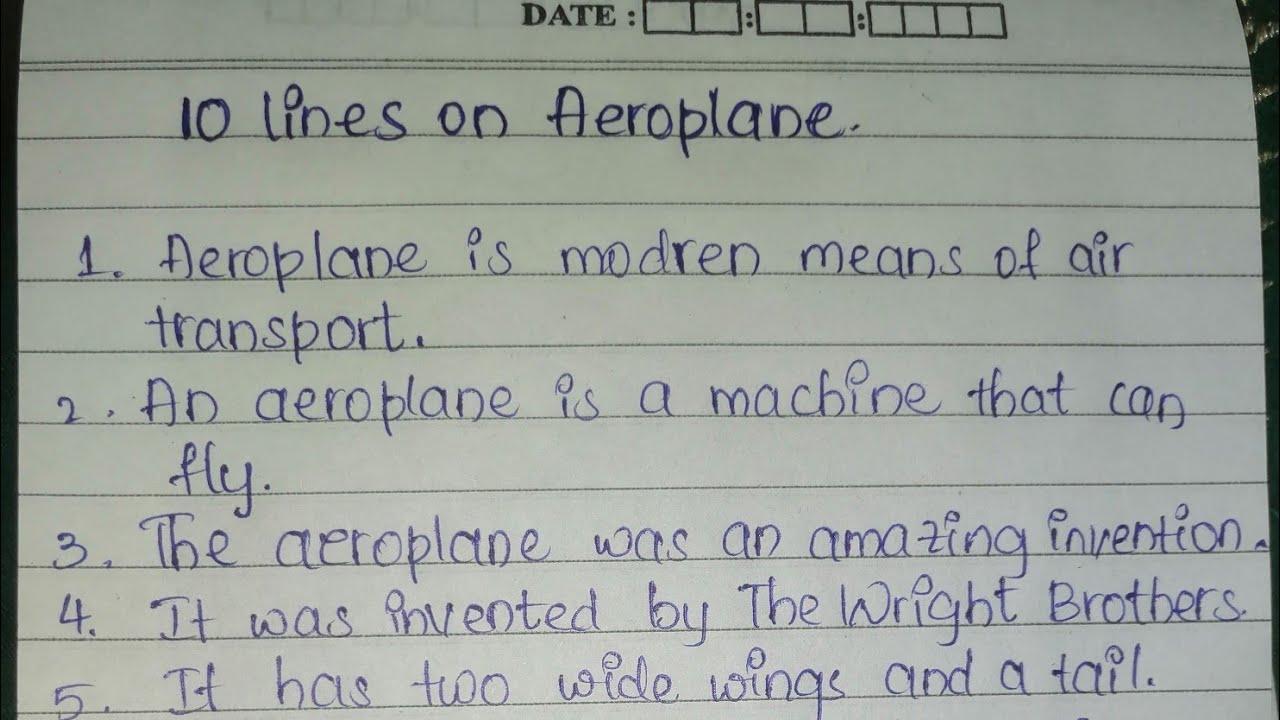 DATE : : :
10 lines on Aeroplane.
1. Aeroplane is modren means of air
transport.
2. An aeroplane is a machine that can
fly.
3. The aeroplane was an amazing invention.
4. It was invented by The Wright Brothers.
5. It has two wide wings and a tail.